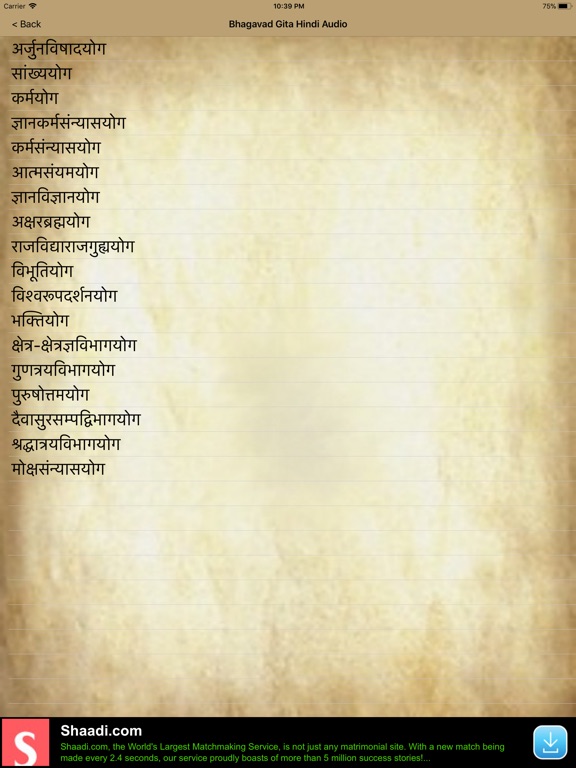 Carrier 10:39 PM 75%
< Back Bhagavad Gita Hindi Audio
अर्जुनविषादयोग
सांख्ययोग
कर्मयोग
ज्ञानकर्मसंन्यासयोग
कर्मसंन्यासयोग
आत्मसंयमयोग
ज्ञानविज्ञानयोग
अक्षरब्रह्मयोग
राजविद्याराजगुह्ययोग
विभूतियोग
विश्वरूपदर्शनयोग
भक्तियोग
क्षेत्र-क्षेत्रज्ञविभागयोग
गुणत्रयविभागयोग
पुरुषोत्तमयोग
दैवासुरसम्पद्विभागयोग
श्रद्धात्रयविभागयोग
मोक्षसंन्यासयोग
S
Shaadi.com
Shaadi.com, the World's Largest Matchmaking Service, is not just any matrimonial site. With a new match being
made every 2.4 seconds, our service proudly boasts of more than 5 million success stories!...